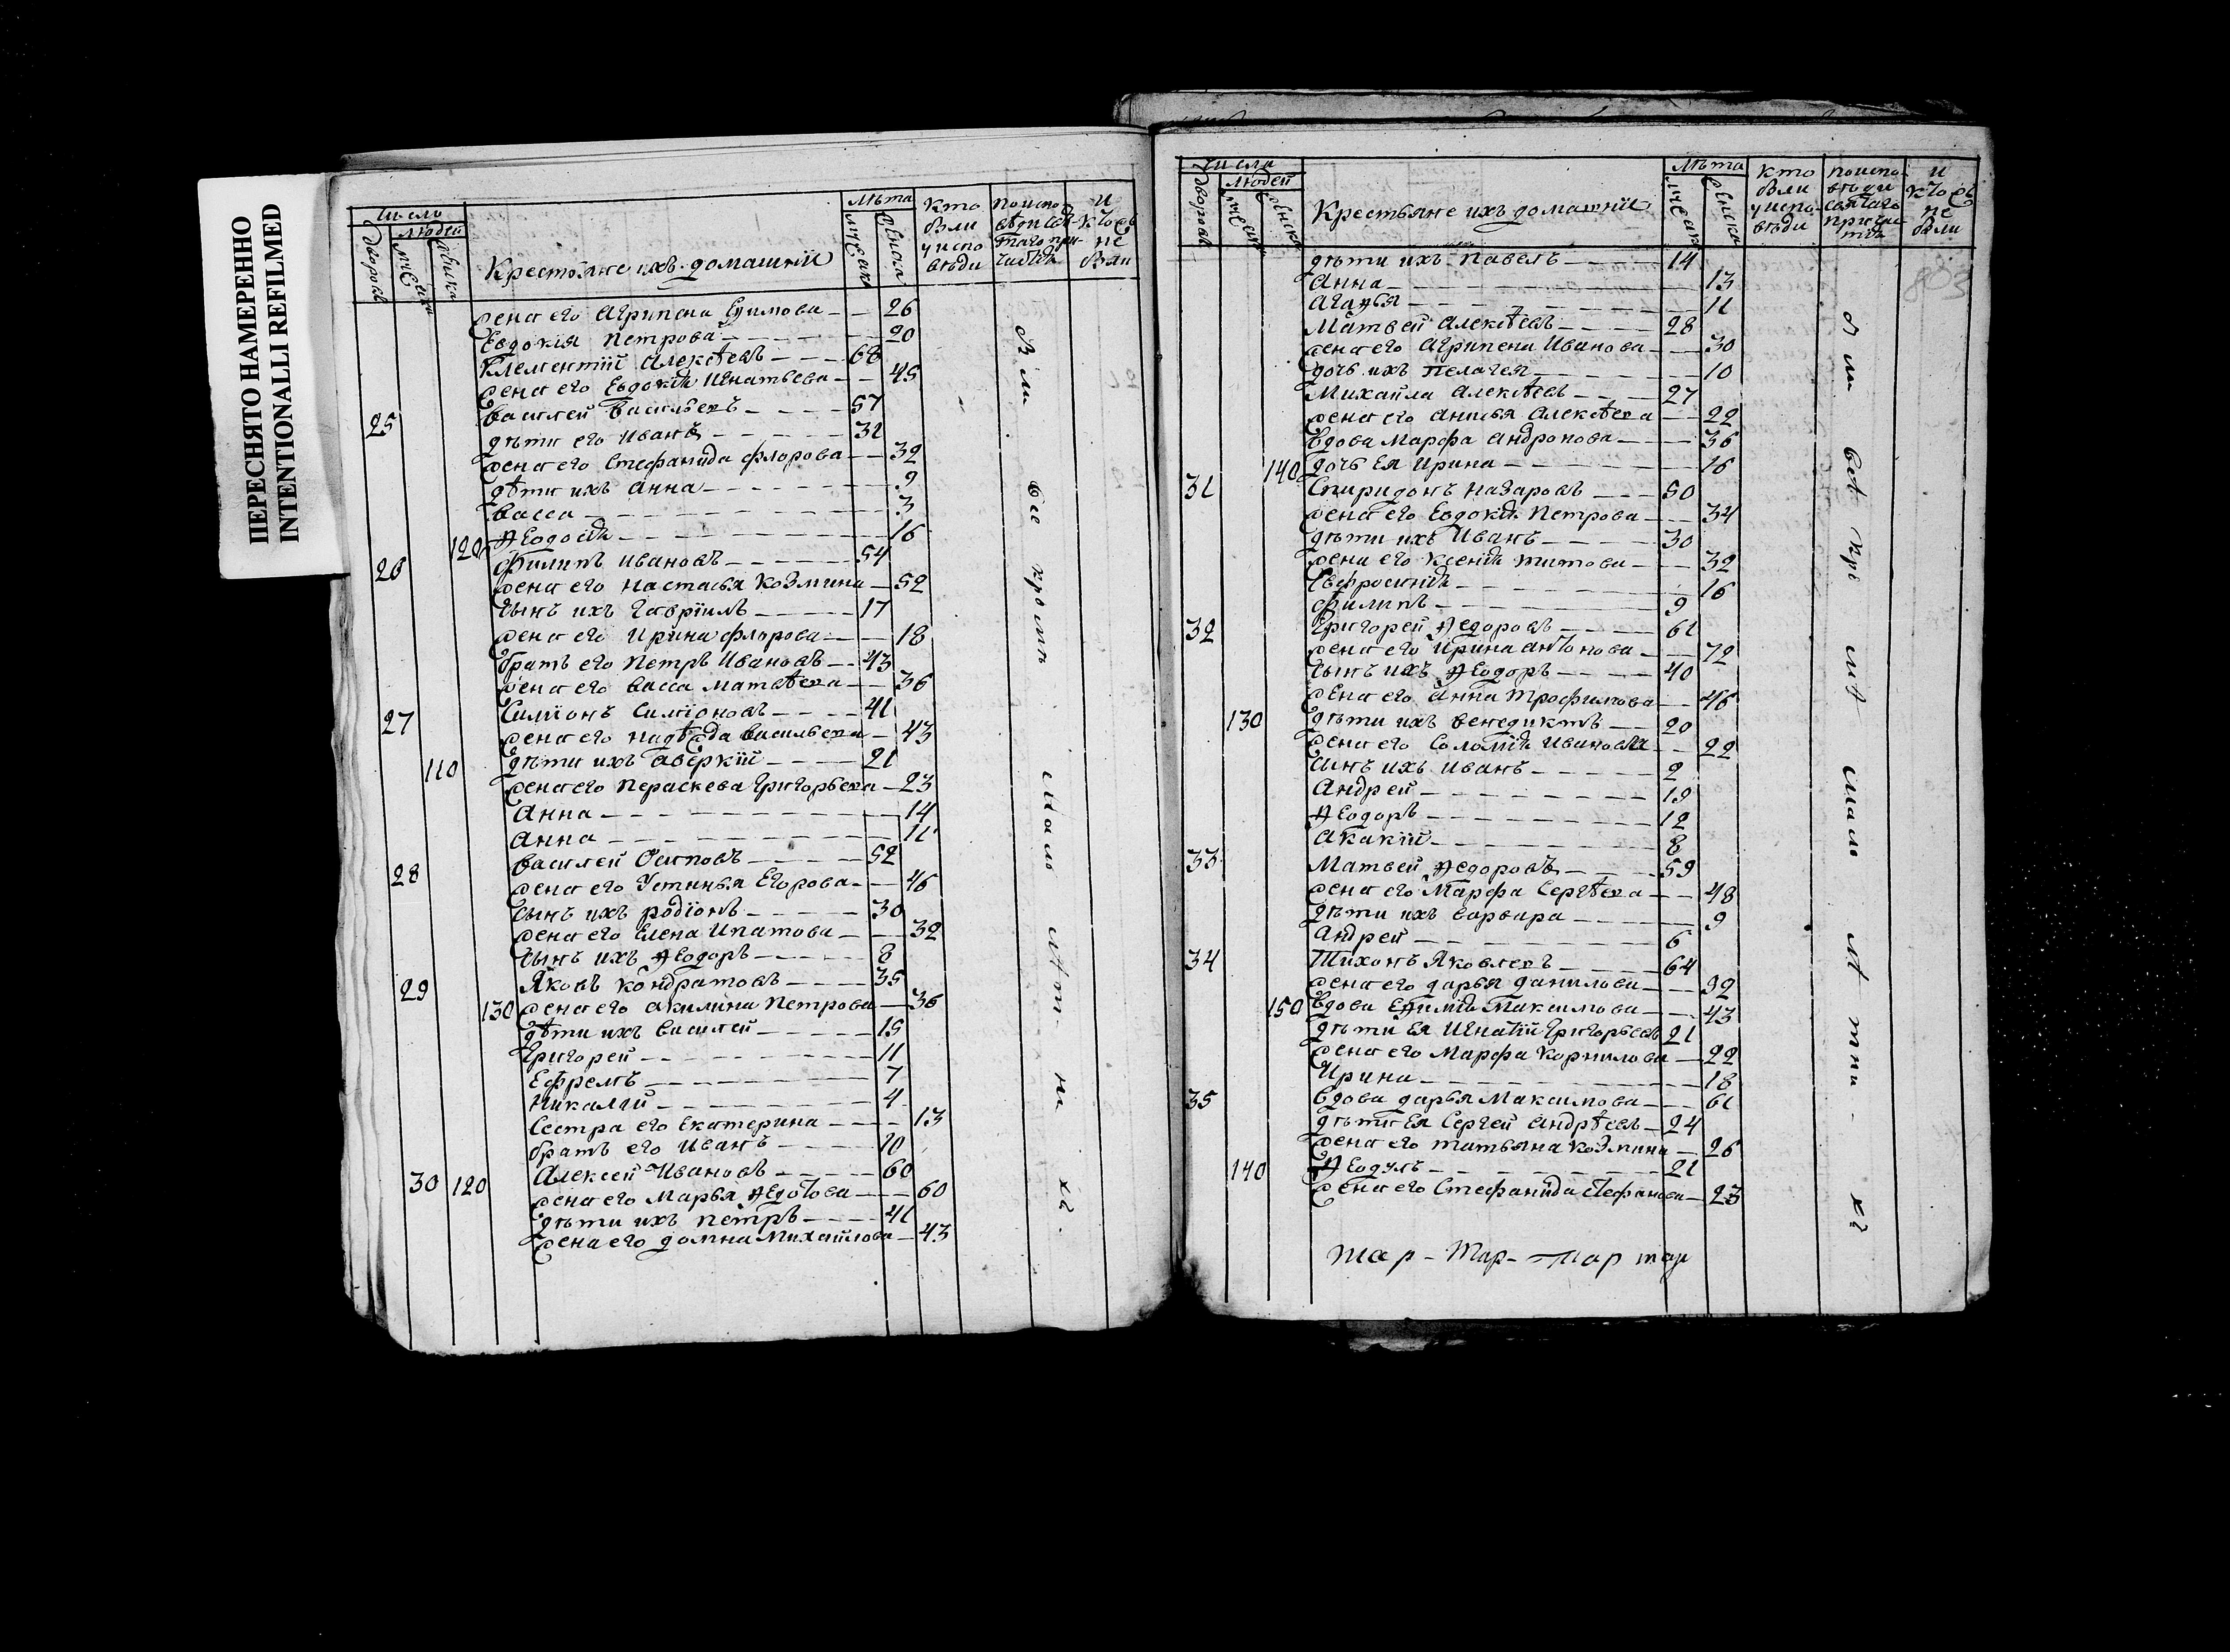 ПЕРЕСНЯТО НАМЕРЕННО
INTENTIONALLI REFILMED
Число Лѣта кто поиспо- и
людей были вѣди свя- кто жъ
дворовъ Крестьяне ихъ домашнїи у испо таго при- не
вѣди были
жена его Агрипена Ефимова 26
Евдокія Петрова 20
Клементїй Алексѣевъ 68
жена его Евдокїя Игнатьева 45
25 Василей Васильевъ 57
дѣти его Иванъ 31
жена его Стефанида Флорова 32
дѣти ихъ Анна 9
Васса 3
120 Ѳеодосїя 16
26 Филипъ Ивановъ 54
жена его Настасья Козмина 52
сынъ ихъ Гаврїилъ 17
жена его Ирина Флорова 18
братъ его Петръ Ивановъ 43
жена его Васса Матвѣева 36
27 Симїонъ Симїоновъ 41
жена его Надѣжда Васильева 43
110 дѣти ихъ Аверкїй 21
жена его Пераскева Григорьева 23
Анна 14
Анна 11
28 Василей Осиповъ 52
жена его Устинья Егорова 46
сынъ ихъ Родїонъ 30
жена его Елена Ипатова 32
сынъ ихъ Ѳеодоръ 8
29 Яковъ Кондратовъ 35
130 жена его Акилина Петрова 36
дѣти ихъ Василей 15
Григорей 11
Ефремъ 7
Николай 4
Сестра его Екатерина 13
братъ его Иванъ 10
30 120 Алексей Ивановъ 60
жена его Марья Ѳедотова 60
дѣти ихъ Петръ 41
жена его Домна Михайлова 43
были все кромѣ маль лѣт- ни хъ.
Числа Лѣта кто поиспо- и
людей были вѣди кто жъ
дворовъ Крестьяне ихъ домашнїи у испо- святаго не
вѣди причас- были
803
дѣти ихъ Павелъ 14
Анна 13
Агафья 11
Матвей Алексѣевъ 28
жена его Агрипена Иванова 30
дочь ихъ Пелагея 10
Михайла Алексѣевъ 27
жена его Анисья Алексѣева 22
вдова Марфа Андронова 36
140 дочь ея Ирина 16
31 Спиридонъ Назаровъ 50
жена его Евдокїя Петрова 34
дѣти ихъ Иванъ 30
жена его Ксенїя Титова 32
Евфросинїя 16
Филипъ 9
32 Григорей Ѳедоровъ 61
жена его Ирина Антонова 72
сынъ ихъ Ѳеодоръ 40
жена его Анна Трофимова 46
130 дѣти ихъ Венедиктъ 20
жена его Соломїя Иванова 22
сынъ ихъ Иванъ 2
Андрей 19
Ѳеодоръ 12
Акакїй 8
33 Матвей Ѳедоровъ 59
жена его Марфа Сергѣева 48
дѣти ихъ Варвара 9
Андрей 6
34 Тихонъ Яковлевъ 64
жена его Дарья Данилова 32
150 вдова Еѳимїя Максимова 43
дѣти ея Игнатїй Григорьевъ 21
жена его Марфа Корнилова 22
Ирина 18
35 вдова Дарья Максимова 61
дѣти ея Сергей Андрѣевъ 24
жена его Татьяна Козмина 26
140 Ѳеодулъ 21
жена его Стефанида Стефанова 23
мар - мар - мар мар